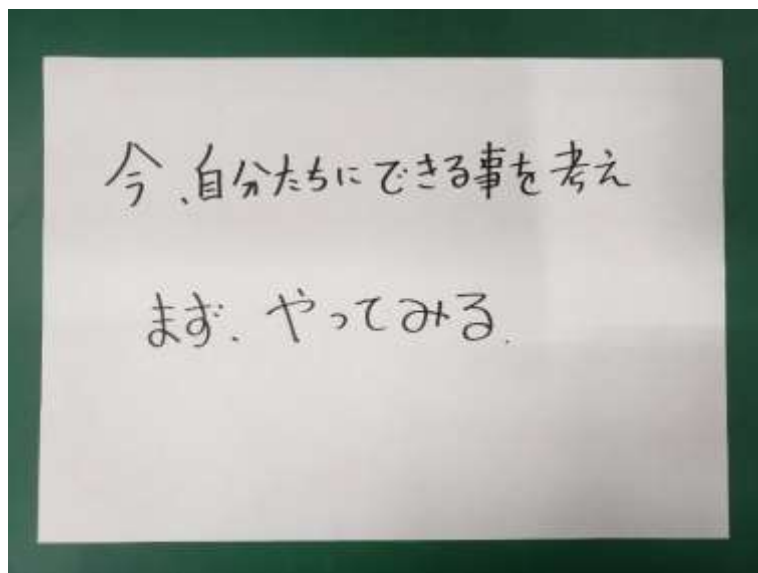 今、自分たちにできる事を考え
まず、やってみる.